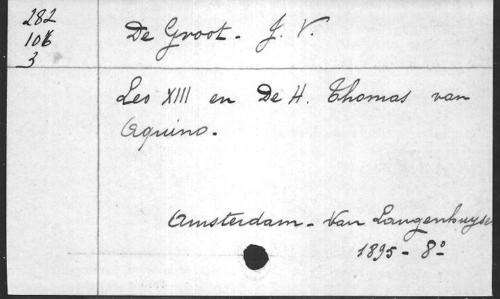 282
106
3
De Groot. J. V.
Leo XIII en De H. Thomas van
Aquino.
Amsterdam - Van Langenhuysen
1895 - 8º